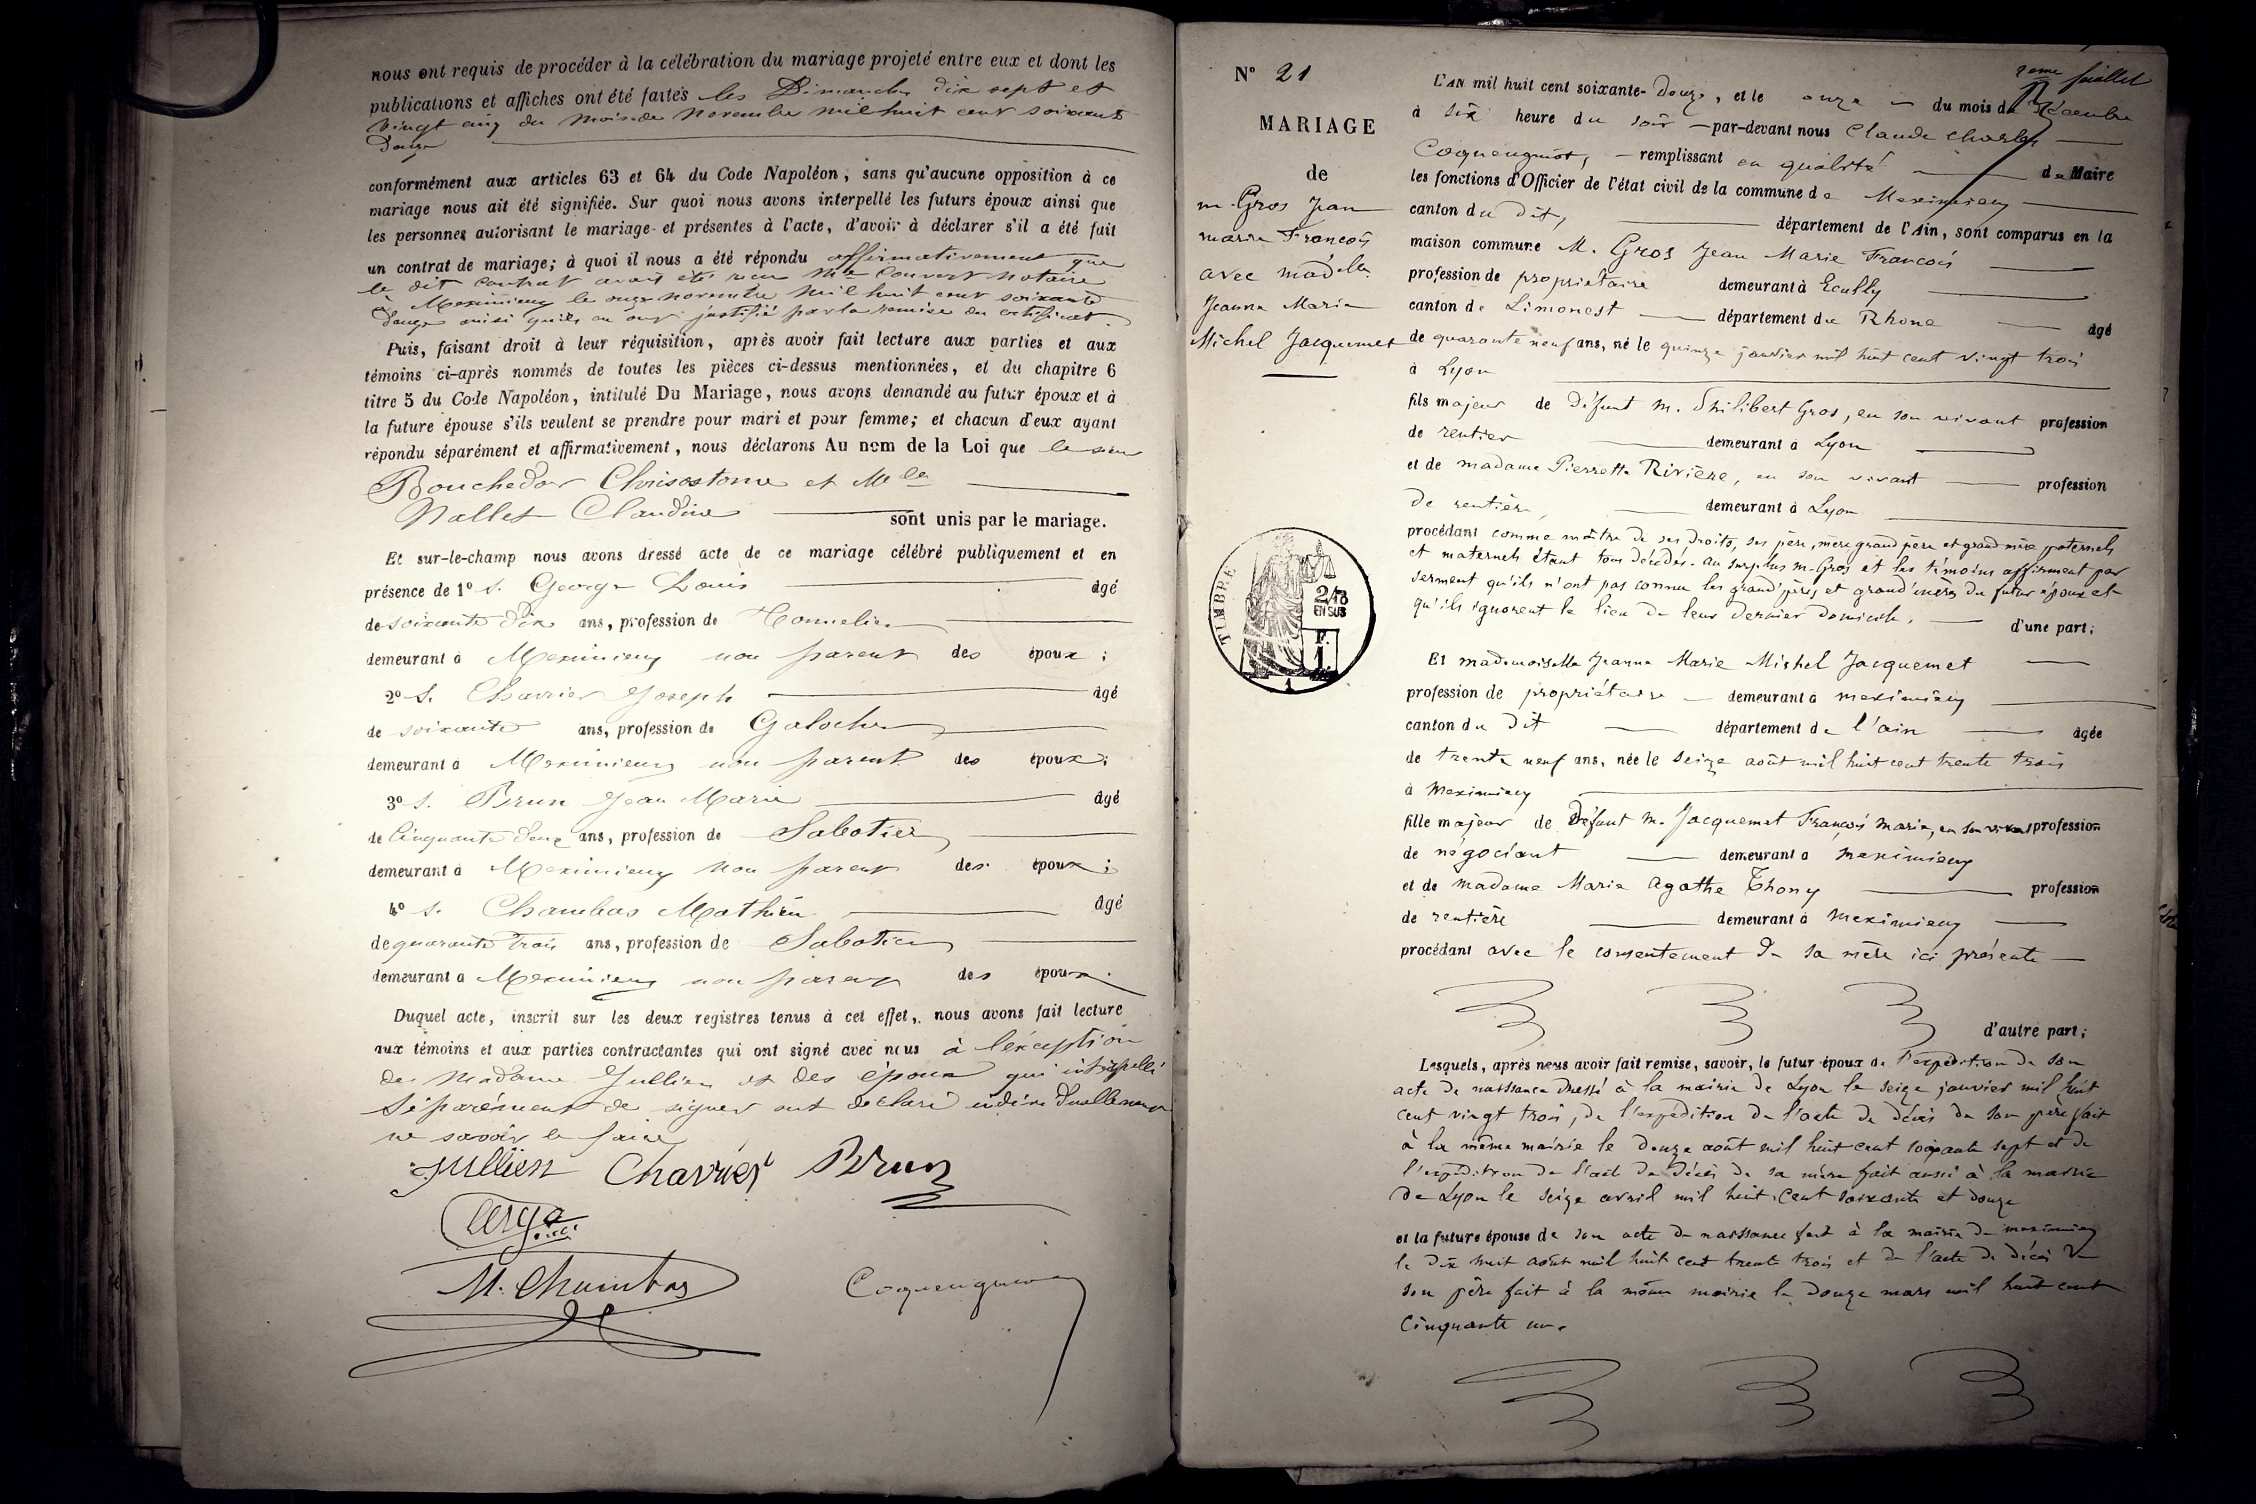 nous ont requis de procéder à la célébration du mariage projeté entre eux et dont les
publications et affiches ont été faites les Dimanches dix sept et
vingt cinq du mois de Novembre mil huit cent soixante
douze
conformément aux articles 63 et 64 du Code Napoléon, sans qu'aucune opposition à ce
mariage nous ait été signifiée. Sur quoi nous avons interpellé les futurs époux ainsi que
les personnes autorisant le mariage et présentes à l'acte, d'avoir à déclarer s'il a été fait
un contrat de mariage; à quoi il nous a été répondu affirmativement que
le dit contrat avait été reçu Me Couvert notaire
à Meximieux le onze novembre mil huit cent soixante
douze ainsi qu'ils en ont justifié par la remise du certificat.
Puis, faisant droit à leur réquisition, après avoir fait lecture aux parties et aux
témoins ci-après nommés de toutes les pièces ci-dessus mentionnées, et du chapitre 6
titre 5 du Code Napoléon, intitulé Du Mariage, nous avons demandé au futur époux et à
la future épouse s'ils veulent se prendre pour mari et pour femme; et chacun d'eux ayant
répondu séparément et affirmativement, nous déclarons Au nom de la Loi que le sieur
Bouchedor Chrisostome et Melle
Nallet Claudine sont unis par le mariage.
Et sur-le-champ nous avons dressé acte de ce mariage célébré publiquement et en
présence de 1° s. George Louis âgé
de soixante dix ans, profession de Tonnelier
demeurant à Meximieux non parent des époux;
2° s. Chavrier Joseph âgé
de soixante ans, profession de Galocher
demeurant à Meximieux non parent des époux;
3° s. Brun Jean Marie âgé
de Cinquante deux ans, profession de Sabotier
demeurant à Meximieux non parent des époux;
4° s. Chambas Mathieu âgé
de quarante trois ans, profession de Sabotier
demeurant à Meximieux non parent des époux.
Duquel acte, inscrit sur les deux registres tenus à cet effet, nous avons fait lecture
aux témoins et aux parties contractantes qui ont signé avec nous à l'exception
de Madame Jullien et des époux qui interpellés
séparément de signer ont déclaré individuellement
ne savoir le faire
Jullien Chavrier Brun
M. Chambas Coquengniot
N° 21
MARIAGE
de
m. Gros Jean
marie François
avec madelle
Jeanne Marie
Michel Jacquemet
TIMBRE
2/10
EN SUS
F.
1
2eme feuillet
L'AN mil huit cent soixante-douze, et le onze du mois de Décembre
à six heure du soir par-devant nous Claude Charles
Coquengniot, remplissant en qualité de Maire
les fonctions d'Officier de l'état civil de la commune de Meximieux
canton du dit, département de l'Ain, sont comparus en la
maison commune M. Gros Jean Marie François
profession de propriétaire demeurant à Ecully
canton de Limonest département du Rhone âgé
de quarante neuf ans, né le quinze janvier mil huit cent vingt trois
à Lyon
fils majeur de Défunt m. Philibert Gros, en son vivant profession
de rentier demeurant à Lyon
et de madame Pierrette Rivière, en son vivant profession
de rentière, demeurant à Lyon
procédant comme maître de ses droits, ses père, mère grand père et grand mère paternels
et maternels étant tous décédés. Au surplus m. Gros et les témoins affirment par
serment qu'ils n'ont pas connu les grand'pères et grand'mères du futur époux et
qu'ils ignorent le lieu de leur dernier domicile. d'une part;
Et mademoiselle Jeanne Marie Michel Jacquemet
profession de propriétaire demeurant à meximieux
canton du dit département de l'ain âgée
de trente neuf ans, née le seize août mil huit cent trente trois
à meximieux
fille majeur de Défunt m. Jacquemet François Marie, en son vivant profession
de négociant demeurant à meximieux
et de madame Marie Agathe Thony profession
de rentière demeurant à meximieux
procédant avec le consentement de sa mère ici présente
d'autre part;
Lesquels, après nous avoir fait remise, savoir, le futur époux de l'expédition de son
acte de naissance dressé à la mairie de Lyon le seize janvier mil huit
cent vingt trois, de l'expédition de l'acte de décès de son père fait
à la même mairie le douze août mil huit cent soixante sept et de
l'expédition de l'acte de décès de sa mère fait aussi à la mairie
de Lyon le seize avril mil huit cent soixante et douze
et la future épouse de son acte de naissance fait à la mairie de meximieux
le dix huit août mil huit cent trente trois et de l'acte de décès de
son père fait à la même mairie le douze mars mil huit cent
cinquante un.